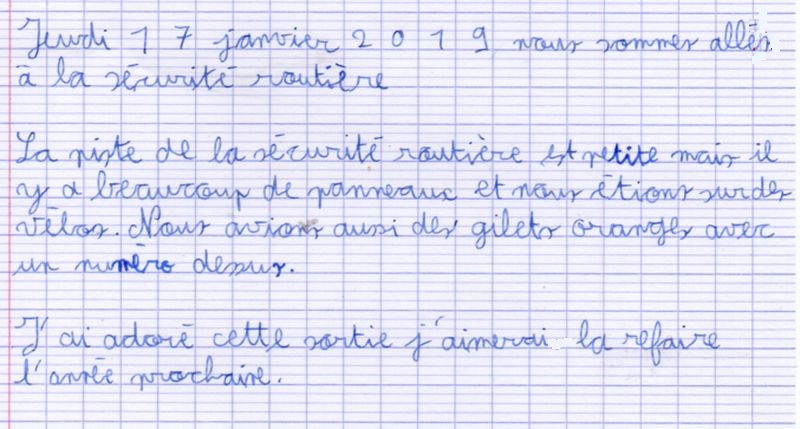 Jeudi 17 janvier 2019 nous sommes allés
à la sécurité routière
La piste de la sécurité routière est petite mais il
y a beaucoup de panneaux et nous étions sur des
vélos. Nous avions aussi des gilets oranges avec
un numéro dessus.
J'ai adoré cette sortie j'aimerai la refaire
l'année prochaine.